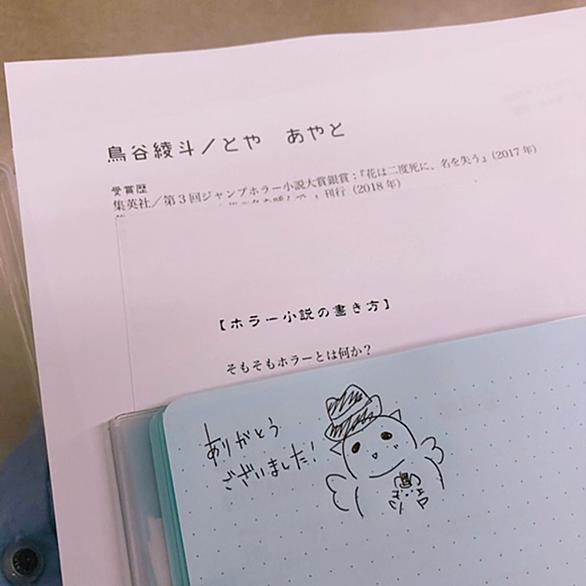 鳥谷綾斗/とや　あやと
受賞歴
集英社/第3回ジャンプホラー小説大賞銀賞:『花は二度死に、名を失う』(2017年)
刊行(2018年)
【ホラー小説の書き方】
そもそもホラーとは何か?
ありがとう
ございました!